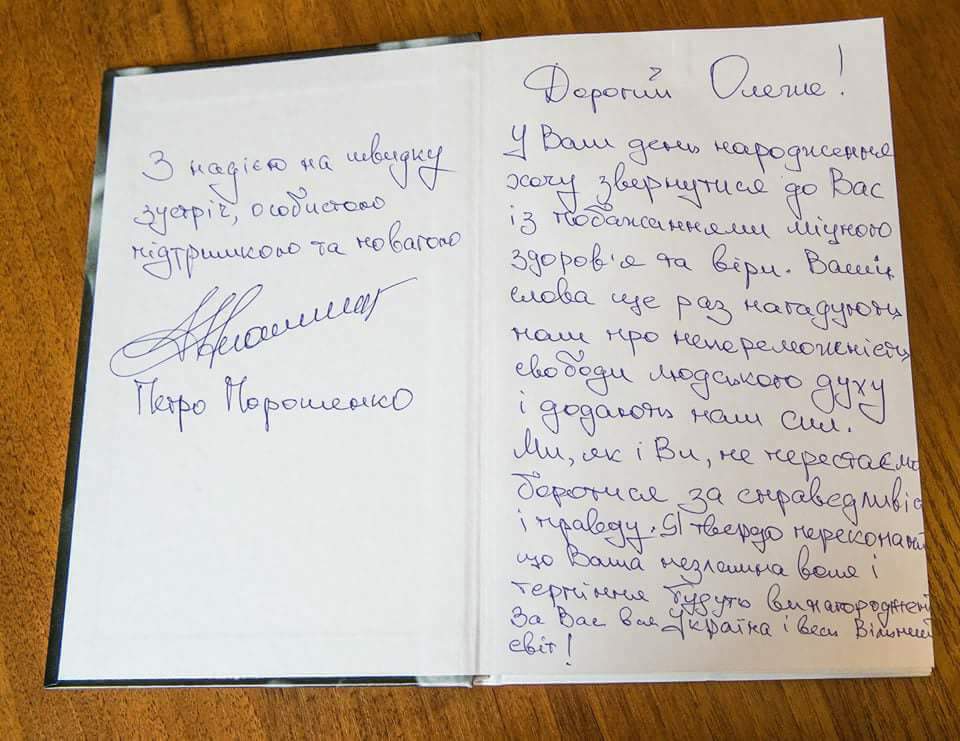 З надією на швидку
зустріч, особистою
підтримкою та повагою
Петро Порошенко
Дорогий Олеже!
У Ваш день народження
хочу звернутися до Вас
із побажаннями міцного
здоров'я та віри. Ваші
слова ще раз нагадують
нам про непереможність
свободи людського духу
і додають нам сил.
Ми, як і Ви, не перестаємо
боротися за справедливіс
і правду. Я твердо переконаний
що Ваша незламна воля і
терпіння будуть винагороджені
За Вас вся Україна і весь Вільний
світ!